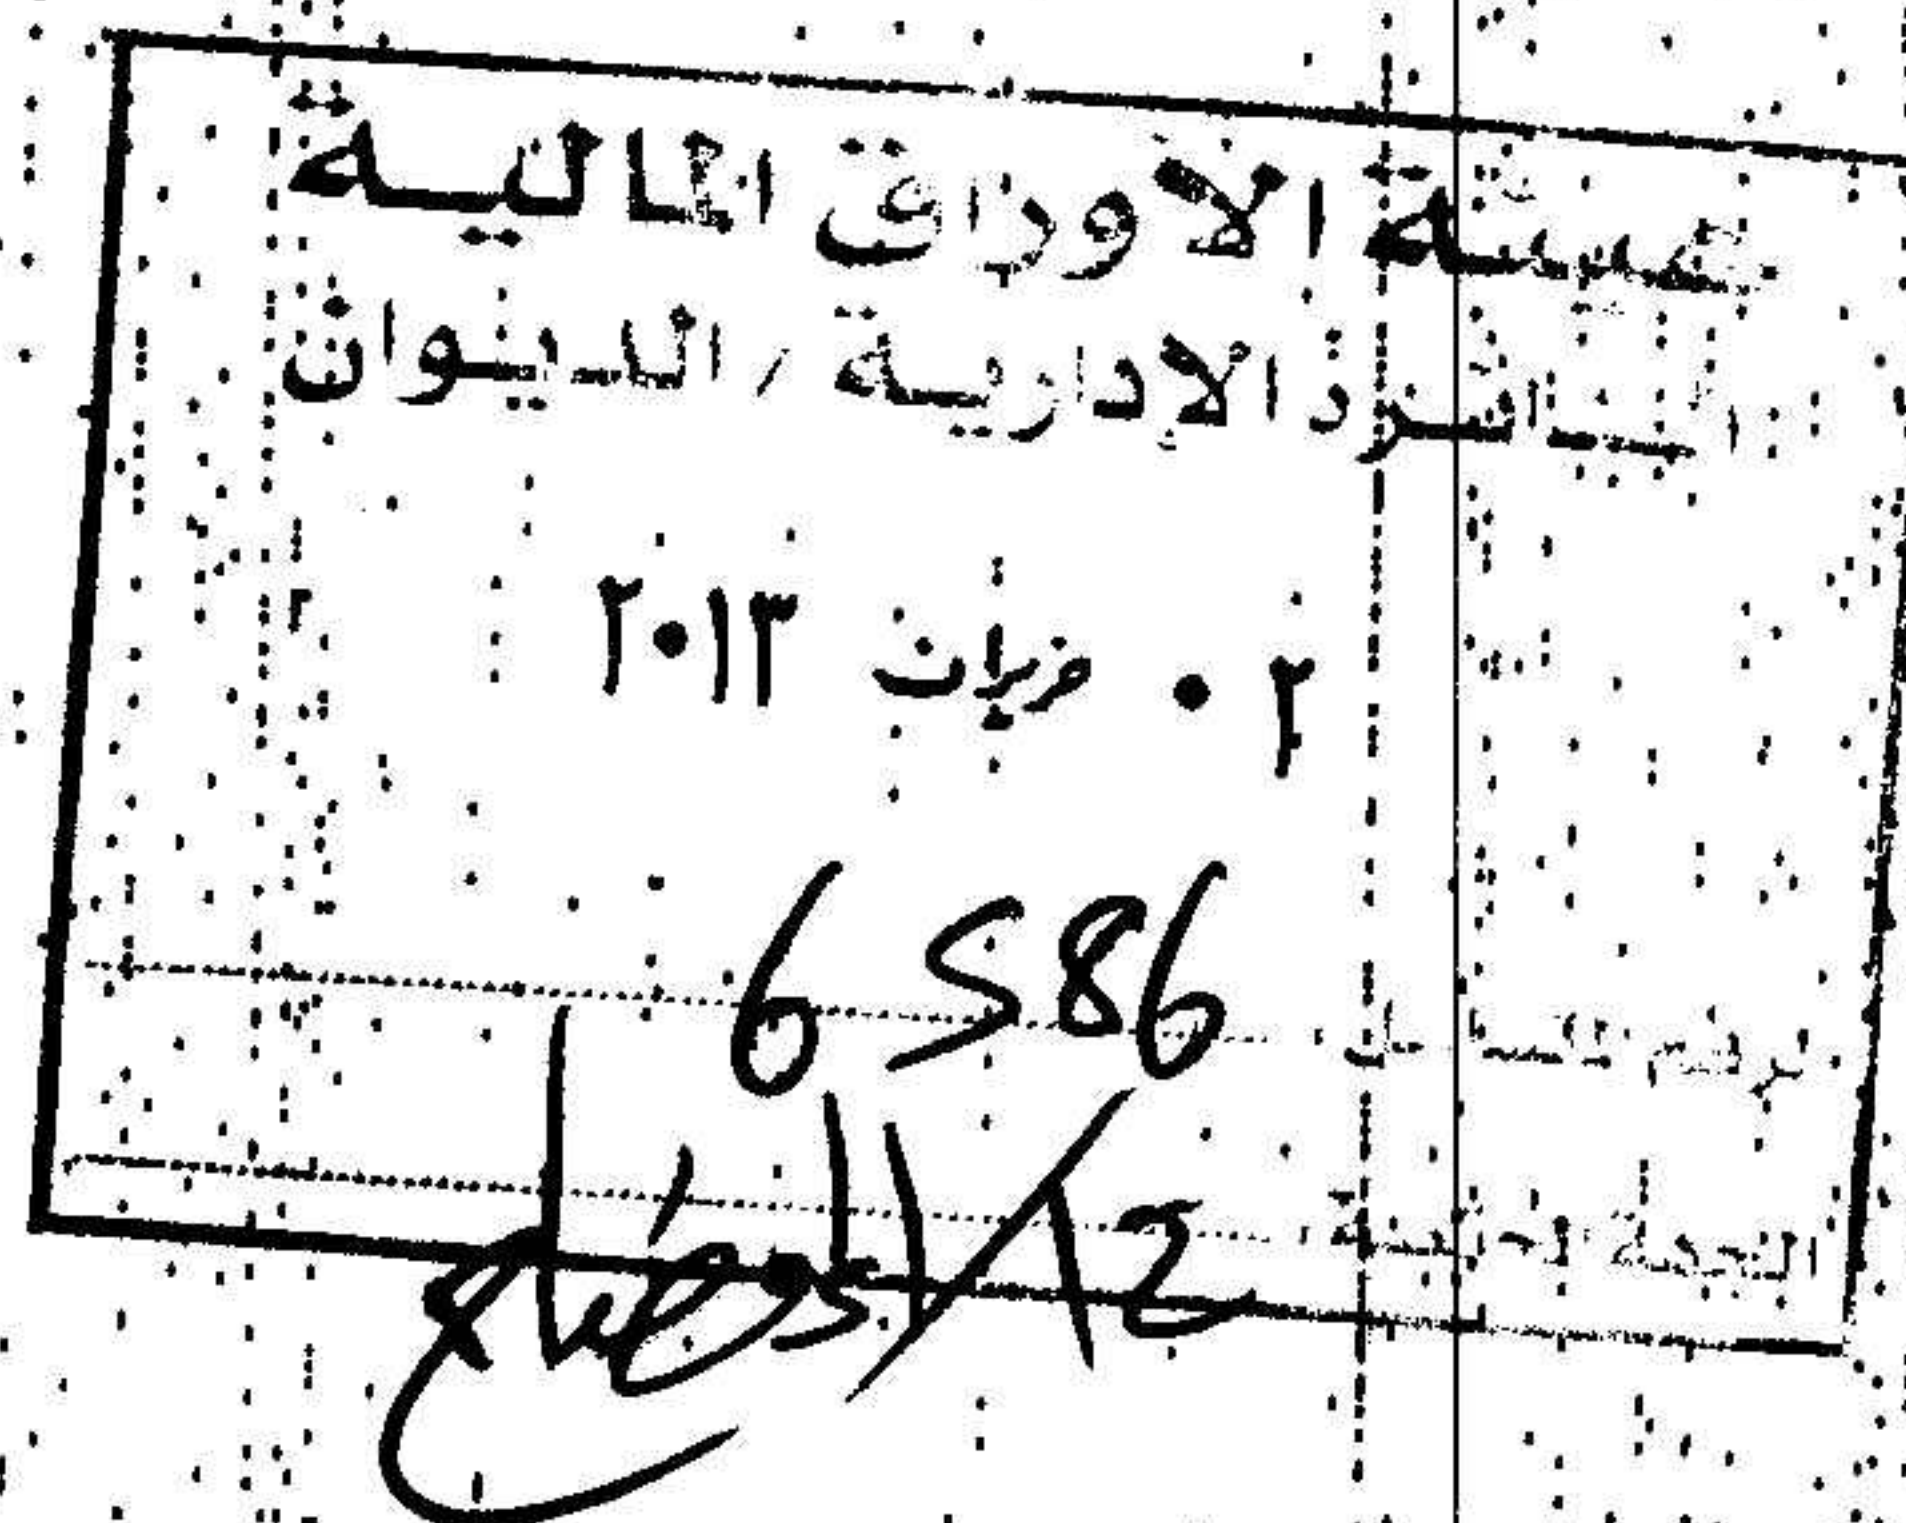 هيئة الاوراق المالية
الدائرة الادارية / الديوان
٠٢ حزيران ٢٠١٣
6586
الرقم المتسلسل
الجهة المختصة الإفصاح